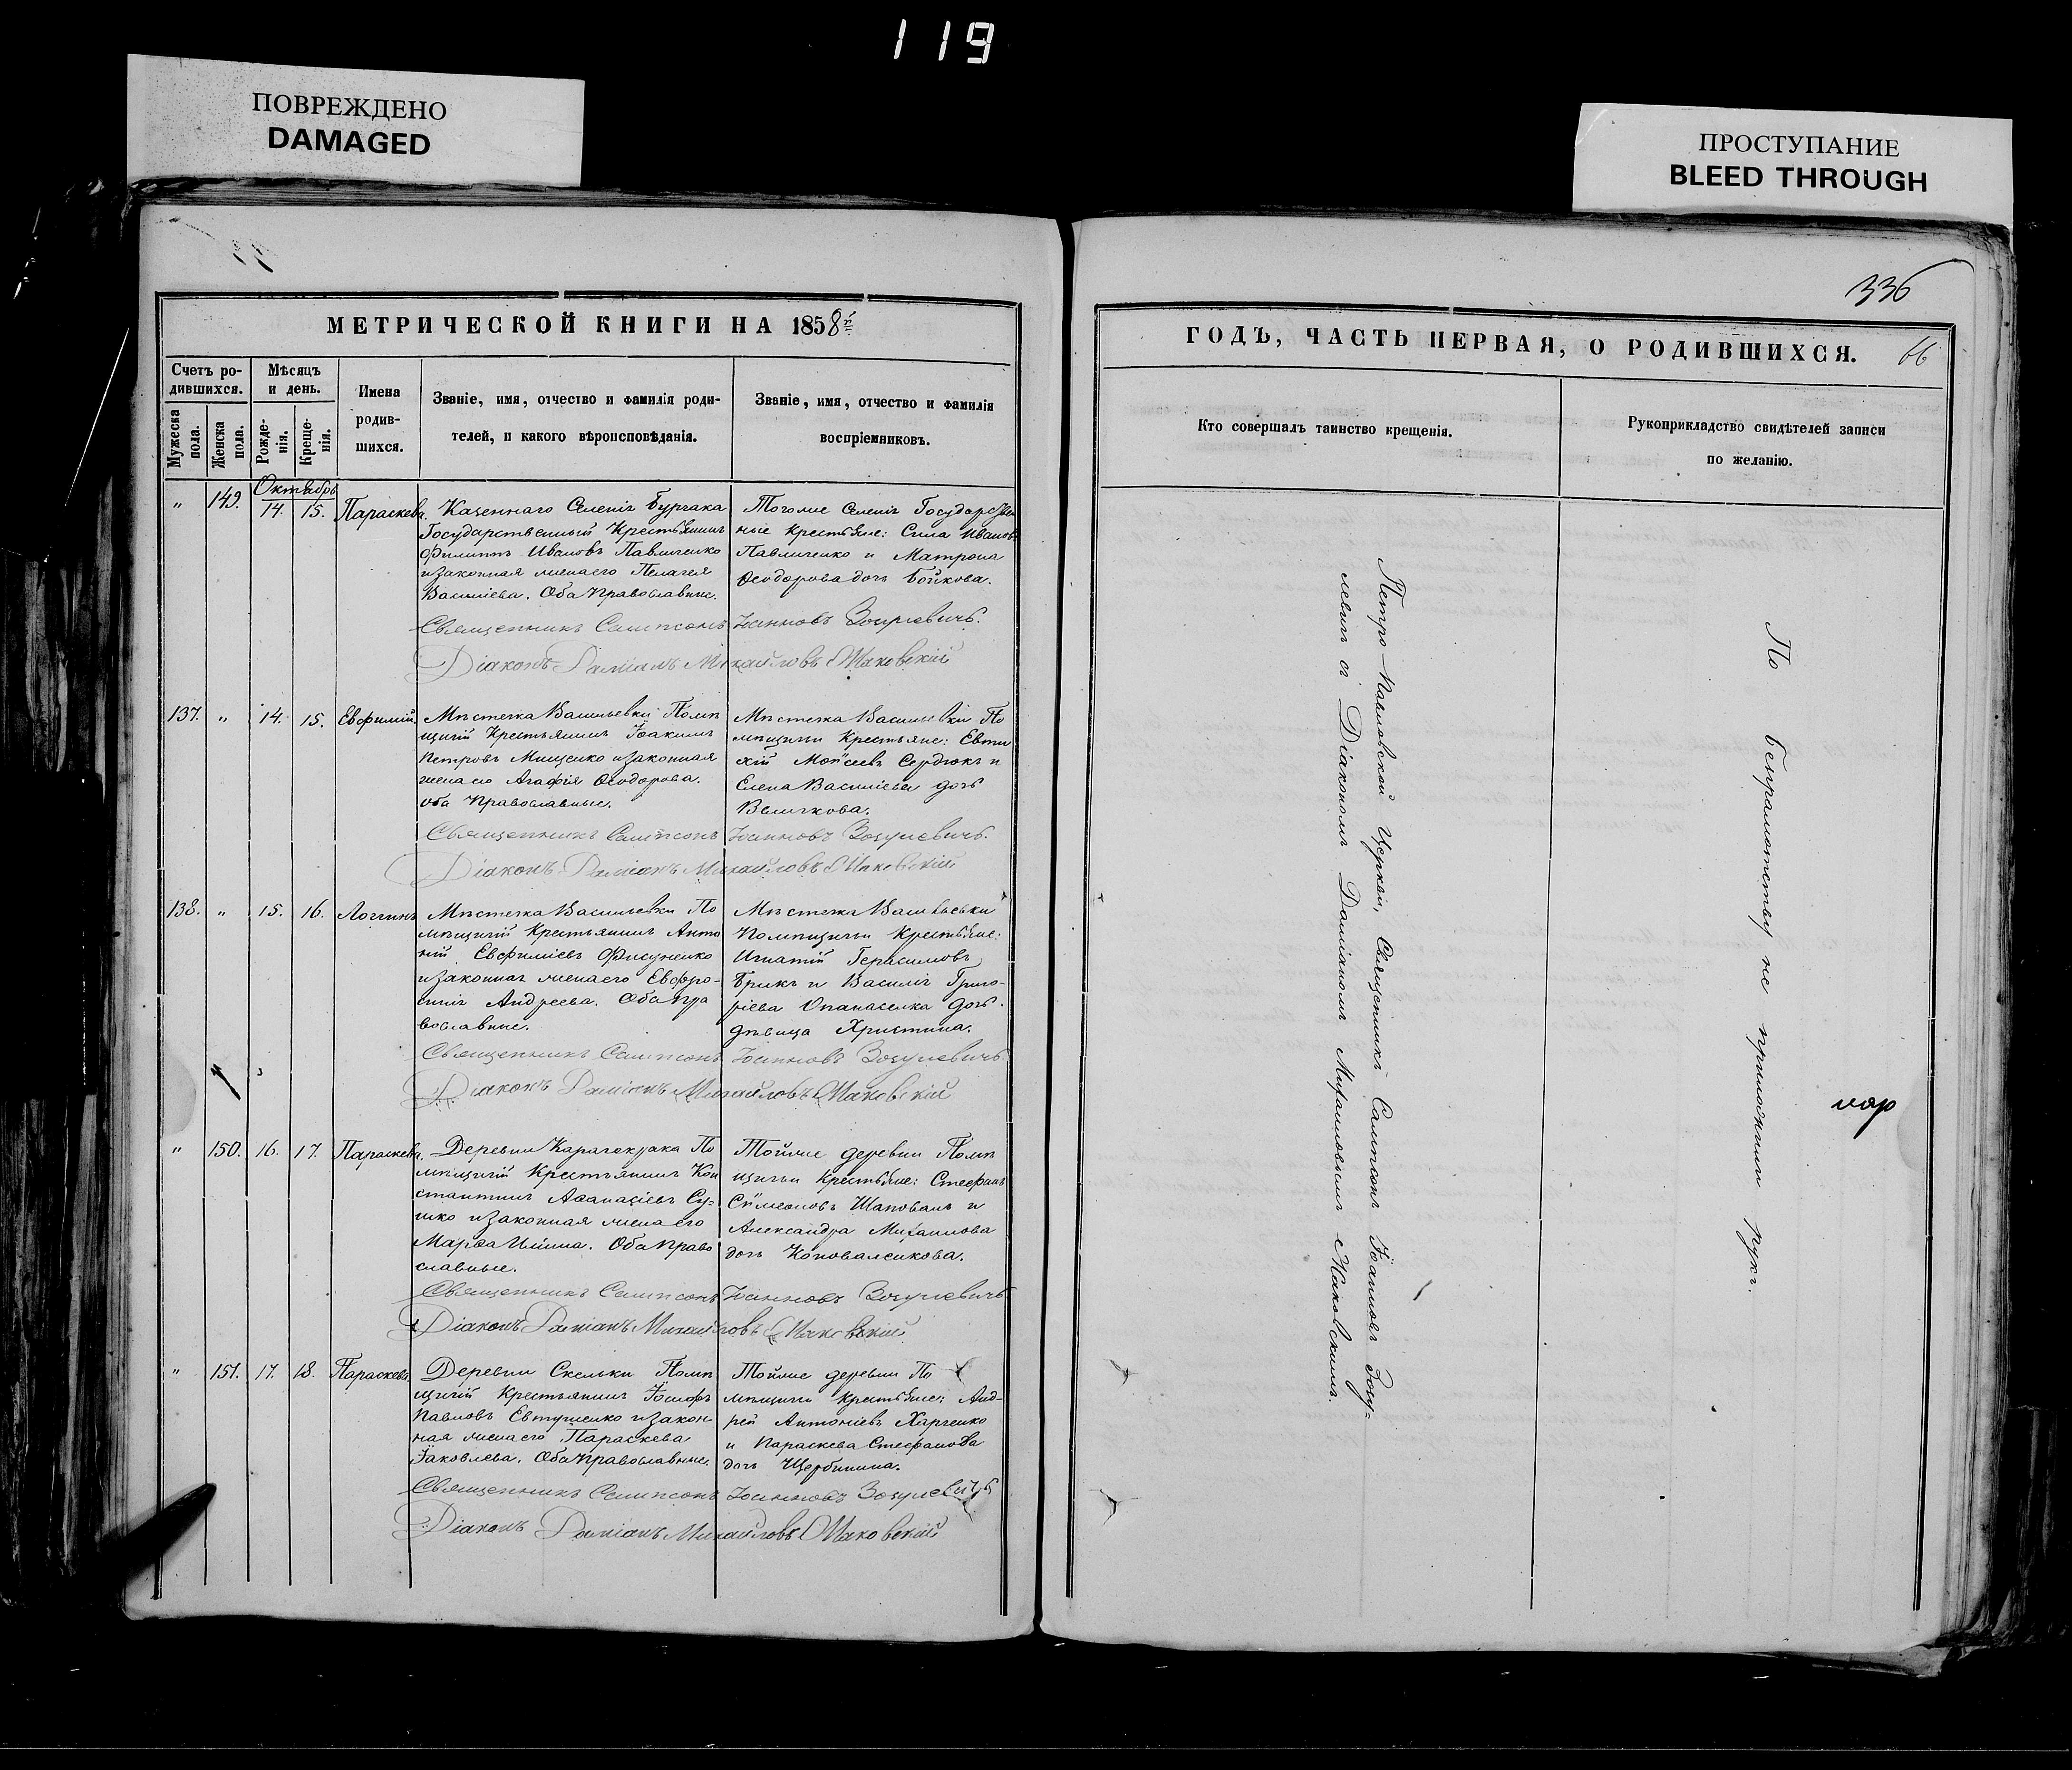 119
ПОВРЕЖДЕНО
DAMAGED
ПРОСТУПАНИЕ
BLEED THROUGH
МЕТРИЧЕСКОЙ КНИГИ НА 1858й
Счетъ ро-
дившихся.
Мѣсяцъ
и день.
Мужеска
пола.
Женска
пола.
Рожде-
нія.
Креще-
нія.
Имена
родив-
шихся.
Званіе, имя, отчество и фамилія роди-
телей, и какого вѣроисповѣданія.
Званіе, имя, отчество и фамилія
воспріемниковъ.
Октябрь
" 149. 14. 15. Параскева.
Казеннаго Селенія Бурчака
Государственный Крестьянинъ
Филиппъ Ивановъ Павличенко
и законная жена его Пелагея
Василіева. Оба Православные.
Тогоже Селенія Государствен
ные Крестьяне: Сила Ивановъ
Павличенко и Матрона
Ѳеодорова дочь Бойкова.
Священникъ Сампсонъ Іоанновъ Зозулевичъ.
Діаконъ Даміанъ Михайловъ Маковскій
137. " 14. 15. Евфимій.
Мѣстечка Васильевки Помѣ
щичій Крестьянинъ Іоакимъ
Петровъ Мищенко и законная
жена его Агафія Ѳеодорова.
оба Православные.
Мѣстечка Васильевки По
мѣщичьи Крестьяне: Евти
хій Мойсеевъ Сердюкъ и
Елена Василіева дочь
Величкова.
Священникъ Сампсонъ Іоанновъ Зозулевичъ.
Діаконъ Даміанъ Михайловъ Маковскій
138. " 15. 16. Логгинъ
Мѣстечка Васильевки По
мѣщичій Крестьянинъ Анто
ній Евфиміевъ Фисуненко
и законная жена его Евфро-
синія Андреева. Оба Пра
вославные.
Мѣстечка Васильевки
Помѣщичьи Крестьяне:
Игнатій Герасимовъ
Брикъ и Василія Григо-
ріева Опанасенка дочь
дѣвица Христина.
Священникъ Сампсонъ Іоанновъ Зозулевичъ
Діаконъ Даміанъ Михайловъ Маковскій
" 150. 16. 17. Параскева.
Деревни Карачокрака По
мѣщичій Крестьянинъ Кон
стантинъ Аѳанасіевъ Су-
шко и законная жена его
Марѳа Иліина. Оба Право
славные.
Тойже деревни Помѣ
щичьи Крестьяне: Стефанъ
Сѵмеоновъ Шаповалъ и
Александра Михаилова
дочь Коноваленкова.
Священникъ Сампсонъ Іоанновъ Зозулевичъ
Діаконъ Даміанъ Михайловъ Маковскій
" 151. 17. 18. Параскева
Деревни Скельки Помѣ
щичій Крестьянинъ Іосифъ
Павловъ Евтушенко и закон
ная жена его Параскева
Іаковлева. Оба Православные.
Тойже деревни По
мѣщичьи Крестьяне: Анд-
рей Антоніевъ Харченко
и Параскева Стефанова
дочь Щербинина.
Священникъ Сампсонъ Іоанновъ Зозулевичъ
Діаконъ Даміанъ Михайловъ Маковскій
336
ГОДЪ, ЧАСТЬ ПЕРВАЯ, О РОДИВШИХСЯ. 66
Кто совершалъ таинство крещенія.
Рукоприкладство свидѣтелей записи
по желанію.
Петро-Павловской Церкви, Священникъ Сампсонъ Іоанновъ Зозу-
левичъ съ Діакономъ Даміаномъ Михаиловымъ Маковскимъ.
По безграмотству не приложили рукъ.